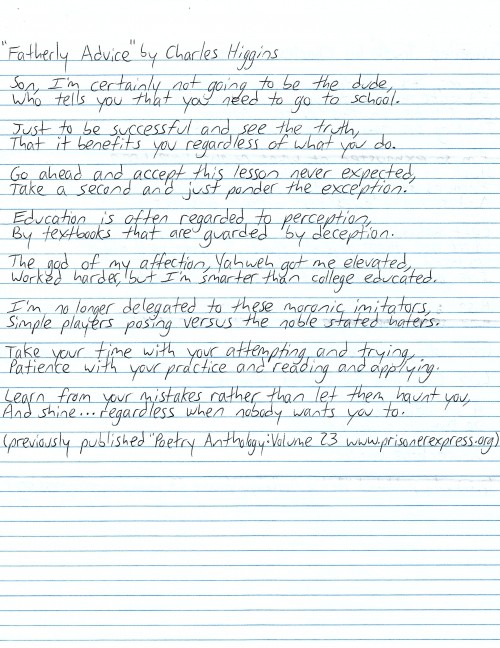 "Fatherly Advice" by Charles Higgins
Son, I'm certainly not going to be the dude,
Who tells you that you need to go to school.
Just to be successful and see the truth,
That it benefits you regardless of what you do.
Go ahead and accept this lesson never expected,
Take a second and just ponder the exception.
Education is often regarded to perception,
By textbooks that are guarded by deception.
The god of my affection, Yahweh got me elevated,
Worked harder, but I'm smarter than college educated.
I'm no longer delegated to these moronic imitators,
Simple players posing versus the noble stated haters.
Take your time with your attempting and trying,
Patience with your practice and reading and applying.
Learn from your mistakes rather than let them haunt you,
And shine...regardless when nobody wants you to.
(previously published "Poetry Anthology: Volume 23 www.prisonerexpress.org)